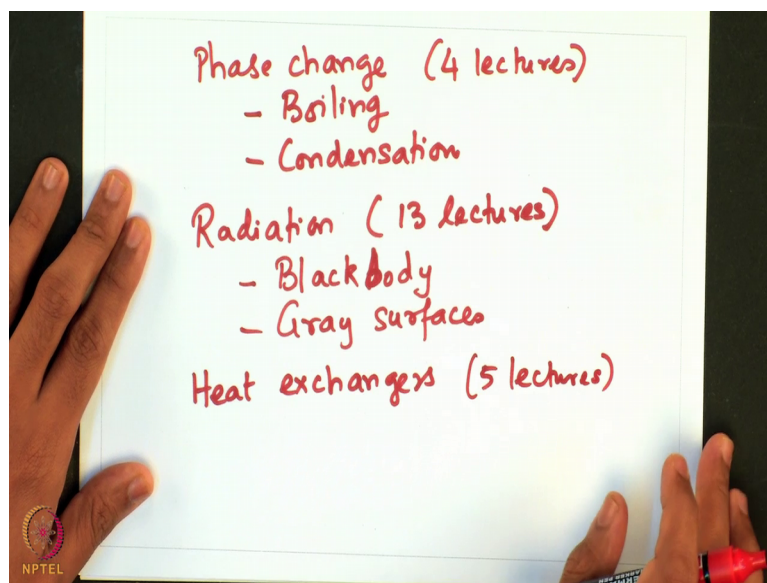 Phase change (4 lectures)
- Boiling
- Condensation
Radiation (13 lectures)
- Blackbody
- Gray surfaces
Heat exchangers (5 lectures)
NPTEL